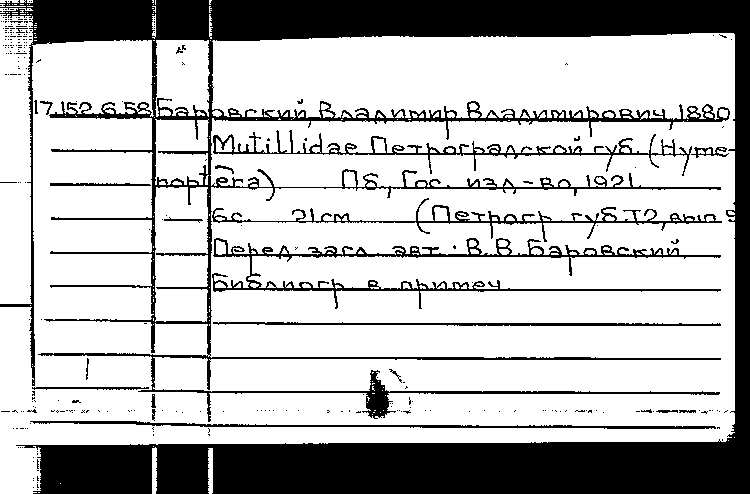 17.152.6.58 Баровский, Владимир Владимирович, 1880.
Mutillidae Петроградской губ. (Hyme-
noptera) Пб., Гос. изд-во, 1921.
6с. 21см (Петрогр губ. Т2, вып 9
Перед загл авт: В. В. Баровский.
Библиогр в примеч.